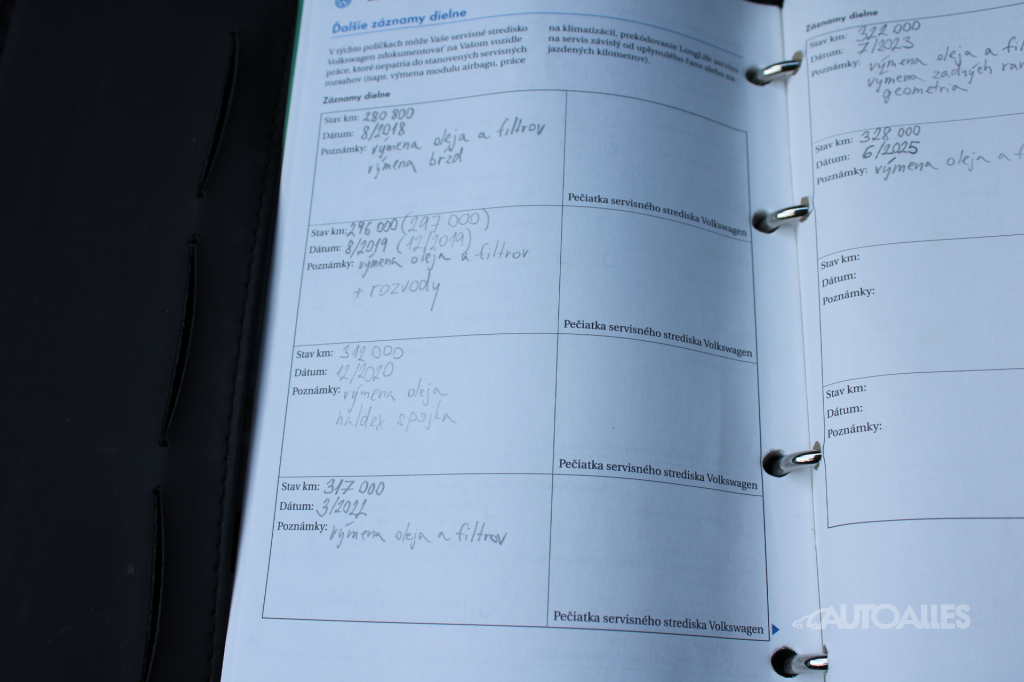 Ďalšie záznamy dielne
V týchto políčkach môže Vaše servisné stredisko
Volkswagen zdokumentovať na Vašom vozidle
práce, ktoré nepatria do stanovených servisných
rozsahov (napr. výmena modulu airbagu, práce
na klimatizácii, prekódovanie LongLife servisu
na servis závislý od uplynulého času alebo na-
jazdených kilometrov).
Záznamy dielne
Stav km: 280 800
Dátum: 8/2018
Poznámky: výmena oleja a filtrov
výmena bŕzd
Pečiatka servisného strediska Volkswagen
Stav km: 296 000 (297 000)
Dátum: 8/2019 (12/2019)
Poznámky: výmena oleja a filtrov
+ rozvody
Pečiatka servisného strediska Volkswagen
Stav km: 312 000
Dátum: 12/2020
Poznámky: výmena oleja
haldex spojka
Pečiatka servisného strediska Volkswagen
Stav km: 317 000
Dátum: 3/2022
Poznámky: výmena oleja a filtrov
Pečiatka servisného strediska Volkswagen
Záznamy dielne
Stav km: 322 000
Dátum: 7/2023
Poznámky: výmena oleja a
výmena zadných
geometria
Stav km: 328 000
Dátum: 6/2025
Poznámky: výmena oleja a
Stav km:
Dátum:
Poznámky:
Stav km:
Dátum:
Poznámky:
AUTOALLES